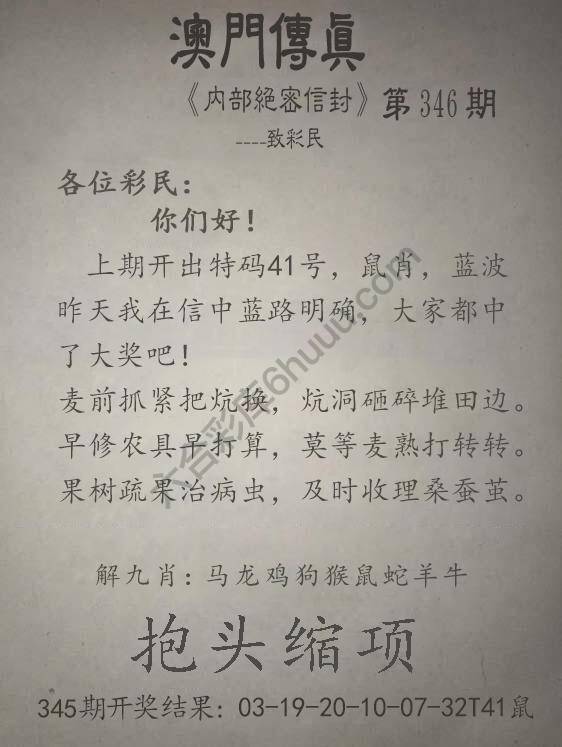 澳門傳眞
《内部絕密信封》第346期
----致彩民
各位彩民：
你们好！
上期开出特码41号，鼠肖，蓝波
昨天我在信中蓝路明确，大家都中
了大奖吧！
麦前抓紧把炕换，炕洞砸碎堆田边。
早修农具早打算，莫等麦熟打转转。
果树疏果治病虫，及时收理桑蚕茧。
解九肖：马龙鸡狗猴鼠蛇羊牛
抱头缩项
345期开奖结果：03-19-20-10-07-32T41鼠
六合彩库6huuu.com